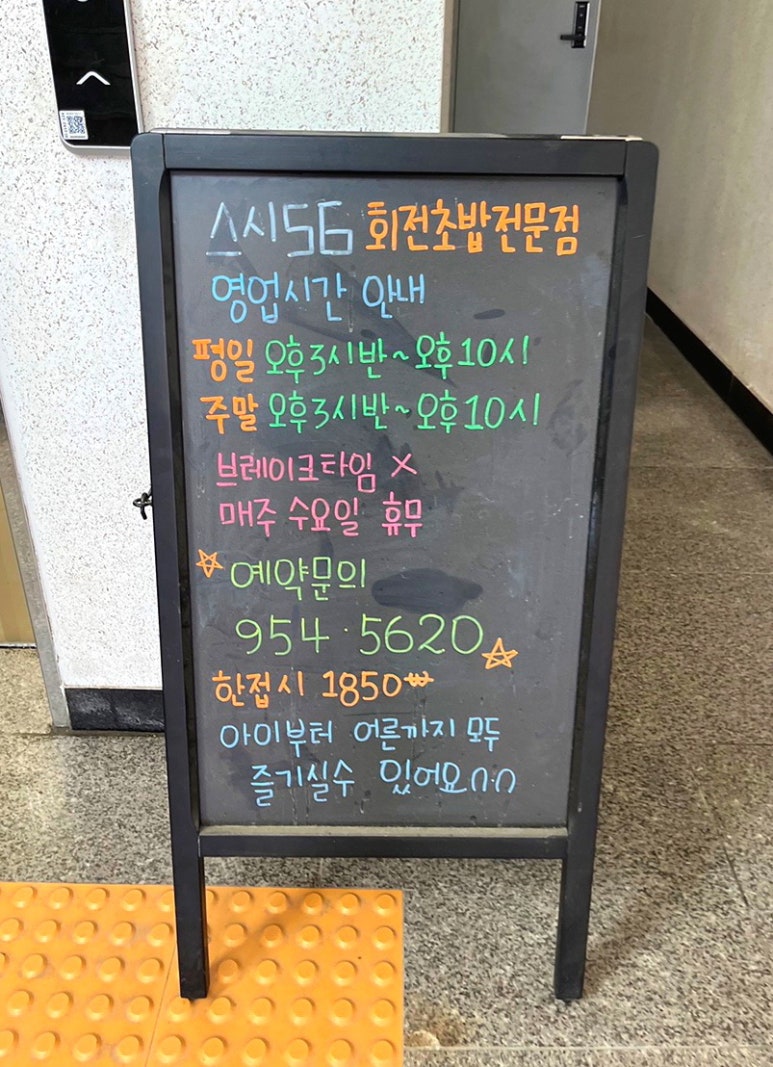 스시56 회전초밥전문점
영업시간 안내
평일 오후3시반~오후10시
주말 오후3시반~오후10시
브레이크타임 X
매주 수요일 휴무
☆ 예약문의
954·5620 ☆
한접시 1850₩
아이부터 어른까지 모두
즐기실수 있어요∩.∩